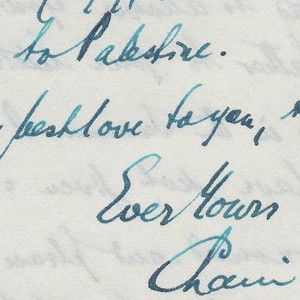 to Palestine.
best love to you,
Ever Yours
Chaim